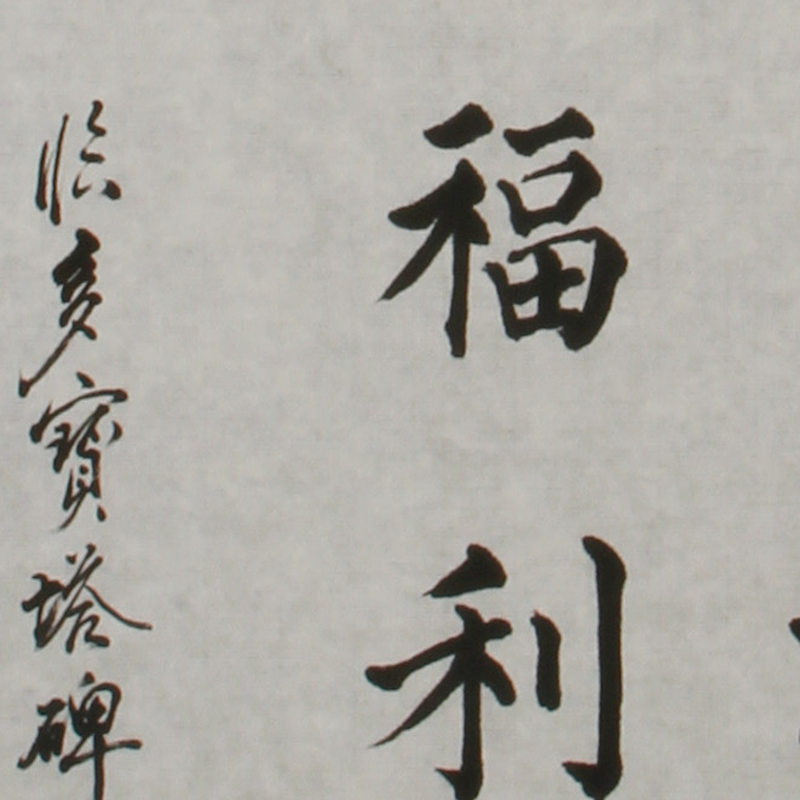 福利
临多寶塔碑